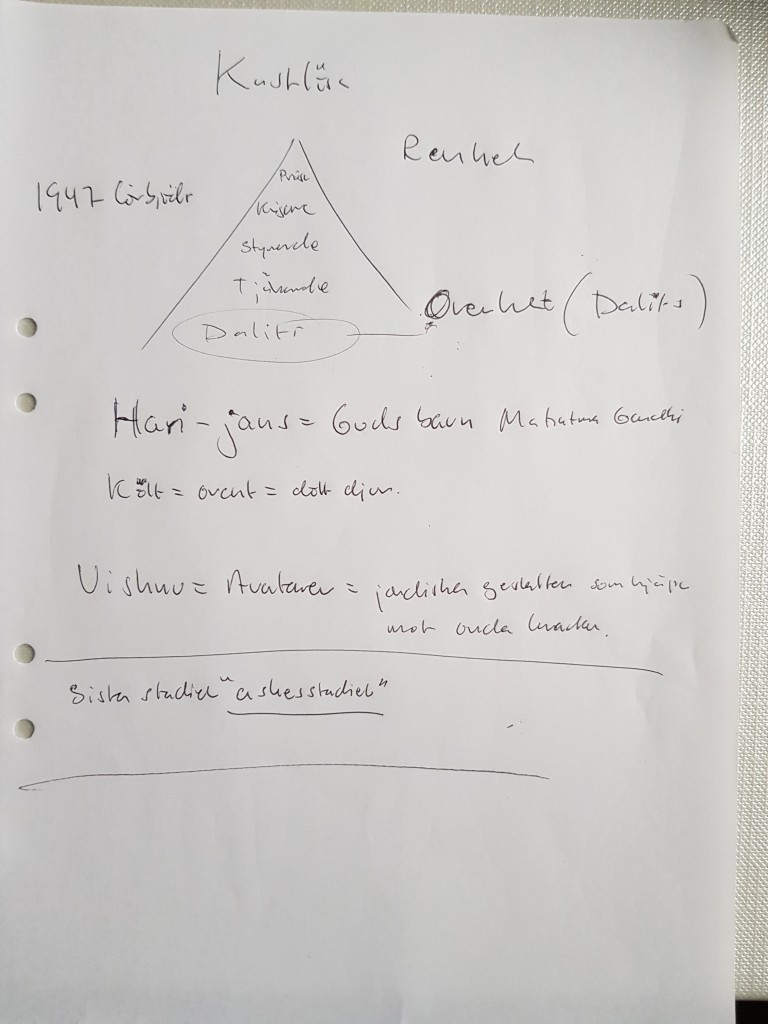 Kastlära
Renhet
1947 förbjöds
Präst
Krigare
Styrande
Tjänande
Dalits
Orenhet (Dalits)
Hari-jans = Guds barn Mahatma Gandhi
Kött = orent = dött djur.
Vishnu = Avatarer = jordiska gestalter som hjälpe
mot onda krafter.
Sista stadiet "askesstadiet"